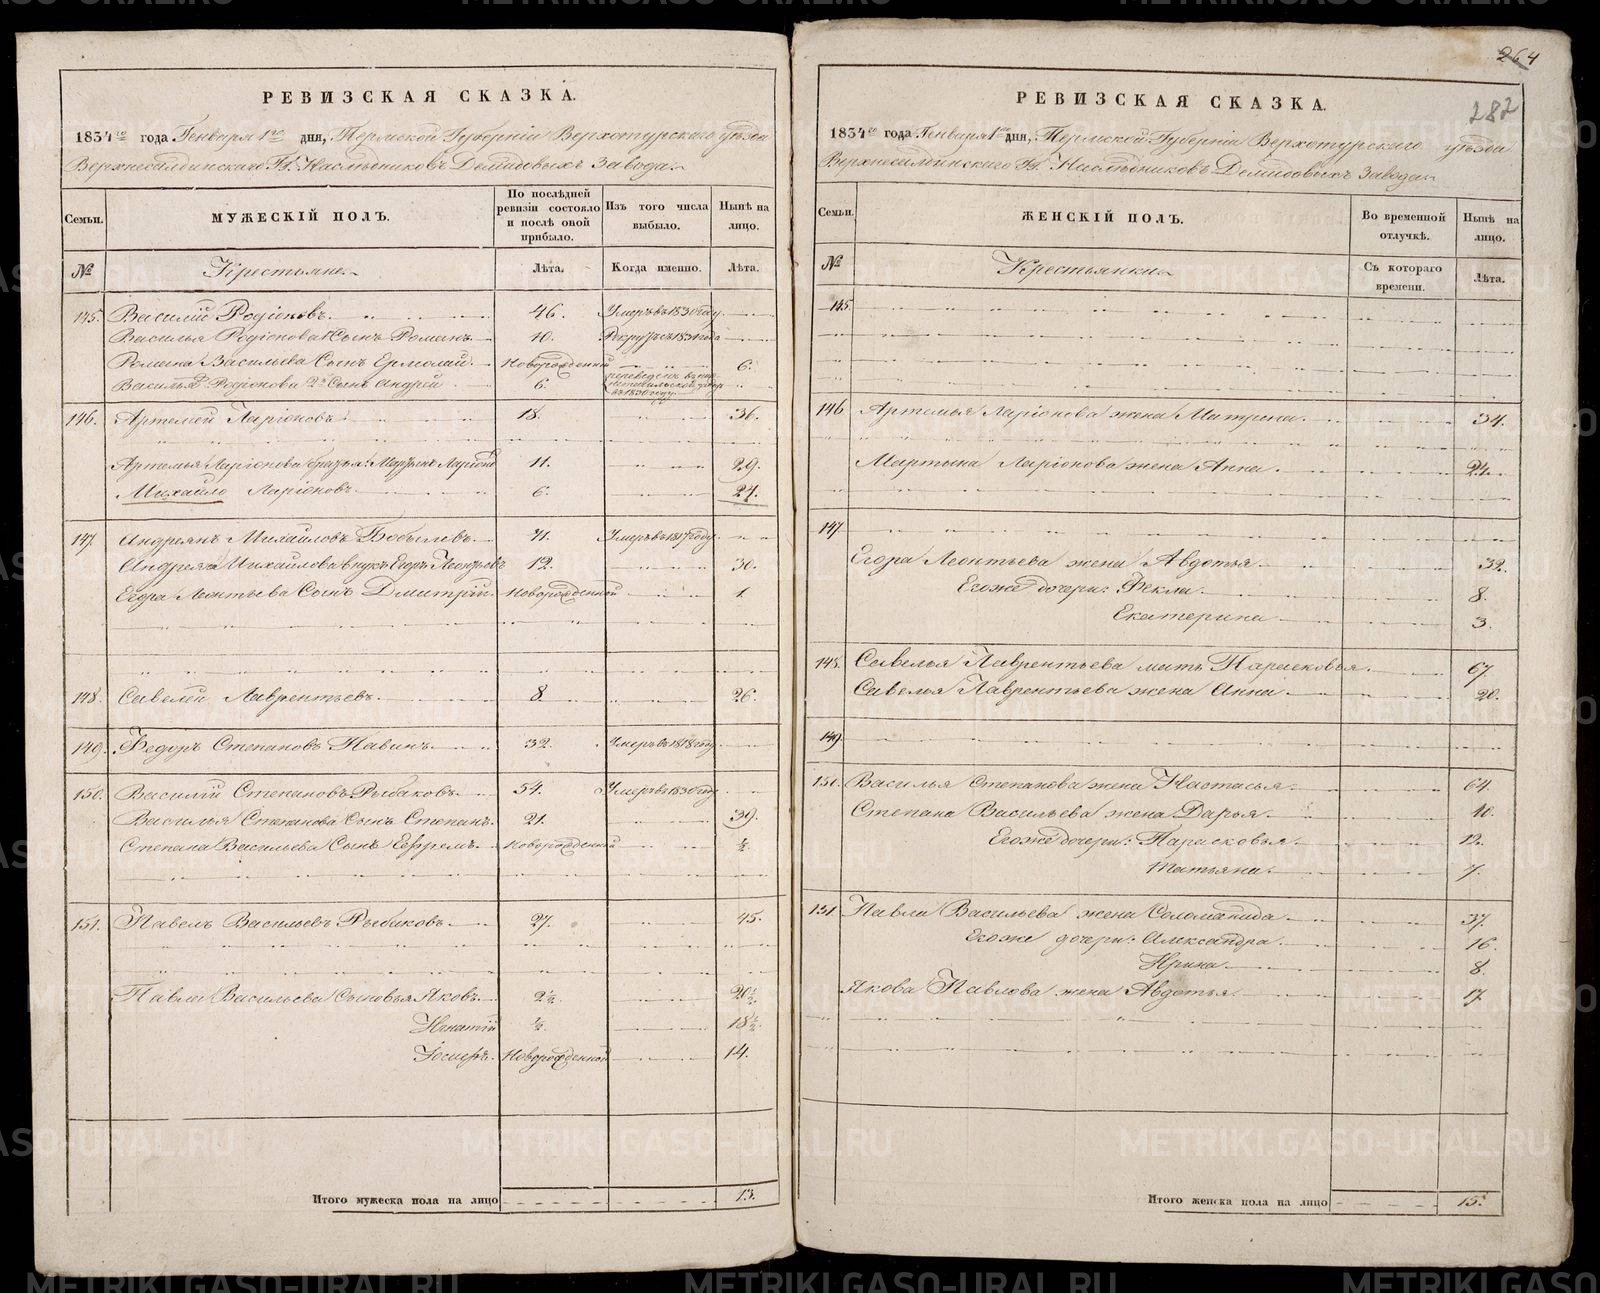 264
282
РЕВИЗСКАЯ СКАЗКА.
1834го года Генваря 1го дня, Пермской Губерніи Верхотурскаго уѣзда
Верхнесалдинскаго Гг. Наслѣдниковъ Демидовыхъ Завода
Семьи. МУЖЕСКІЙ ПОЛЪ. По послѣдней ревизіи состояло и послѣ оной прибыло. Изъ того числа выбыло. Нынѣ на лицо.
№ Крестьяне Лѣта. Когда именно. Лѣта.
145. Василій Родіоновъ 46. Умеръ въ 1830 году
Василья Родіонова Сынъ Романъ 10. Рекрутъ съ 1831 года
Романа Васильева Сынъ Ермолай Новорожденной 6.
Василья Родіонова 2й Сынъ Андрей 6. переведенъ въ въ 1830 году
146. Артемей Ларіоновъ 18. 36.
Артемья Ларіонова братья: Мартынъ Ларіоновъ 11. 29.
Михайло Ларіоновъ 6. 24.
147. Андреянъ Михайловъ Бобылевъ 71. Умеръ въ 1817 году
Андреяна Михайлова внукъ Егоръ Леонтьевъ 12. 30.
Егора Леонтьева Сынъ Дмитрій Новорожденной 1.
148. Савелей Лаврентьевъ 8 26.
149. Федоръ Степановъ Павинъ 32. Умеръ въ 1818 году
150. Василій Степановъ Рыбаковъ 54. Умеръ въ 1830 году
Василья Степанова Сынъ Степанъ 21. 39.
Степана Васильева Сынъ Ефремъ Новорожденной ½.
151. Павелъ Васильевъ Рыбаковъ 27. 45.
Павла Васильева Сыновья Яковъ 2½. 20½.
Игнатій ½. 18½.
Іосифъ Новорожденной 14.
Итого мужеска пола на лицо 13.
РЕВИЗСКАЯ СКАЗКА.
1834го года Генваря 1го дня, Пермской Губерніи Верхотурскаго уѣзда
Верхнесалдинскаго Гг. Наслѣдниковъ Демидовыхъ Завода
Семьи. ЖЕНСКІЙ ПОЛЪ. Во временной отлучкѣ. Нынѣ на лицо.
№ Крестьянки Съ котораго времени. Лѣта.
145
146. Артемья Ларіонова жена Матрина 34.
Мартына Ларіонова жена Анна 24.
147
Егора Леонтьева жена Авдотья 32.
Егоже дочери: Фекла 8.
Екатерина 3.
148. Савелья Лаврентьева мать Парасковья 67.
Савелья Лаврентьева жена Анна 20.
149.
150. Василья Степанова жена Настасья 64.
Степана Васильева жена Дарья 40.
Егоже дочери: Парасковья 12.
Татьяна 7.
151 Павла Васильева жена Соломанида 37.
Егоже дочери: Александра 16.
Ирина 8.
Якова Павлова жена Авдотья 17.
Итого женска пола на лицо 15.
METRIKI.GASO-URAL.RU